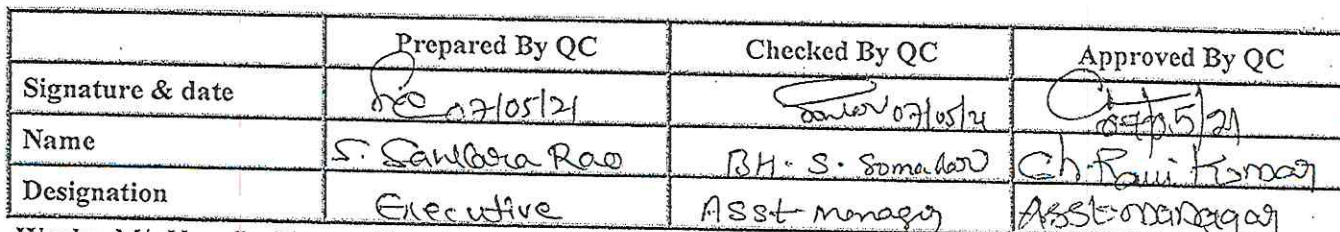 Prepared By QC Checked By QC Approved By QC
Signature & date 07/05/21 07/05/21 07/05/21
Name S. Sankara Rao BH. S. Ch. Ravi Kumar
Designation Executive Asst manager Asst managar